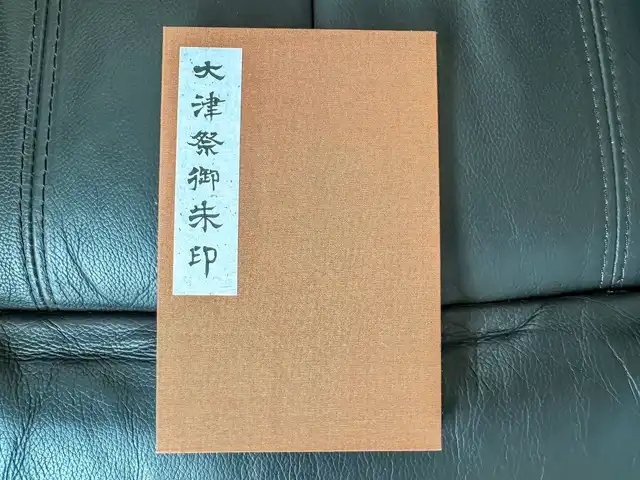 大津祭御朱印